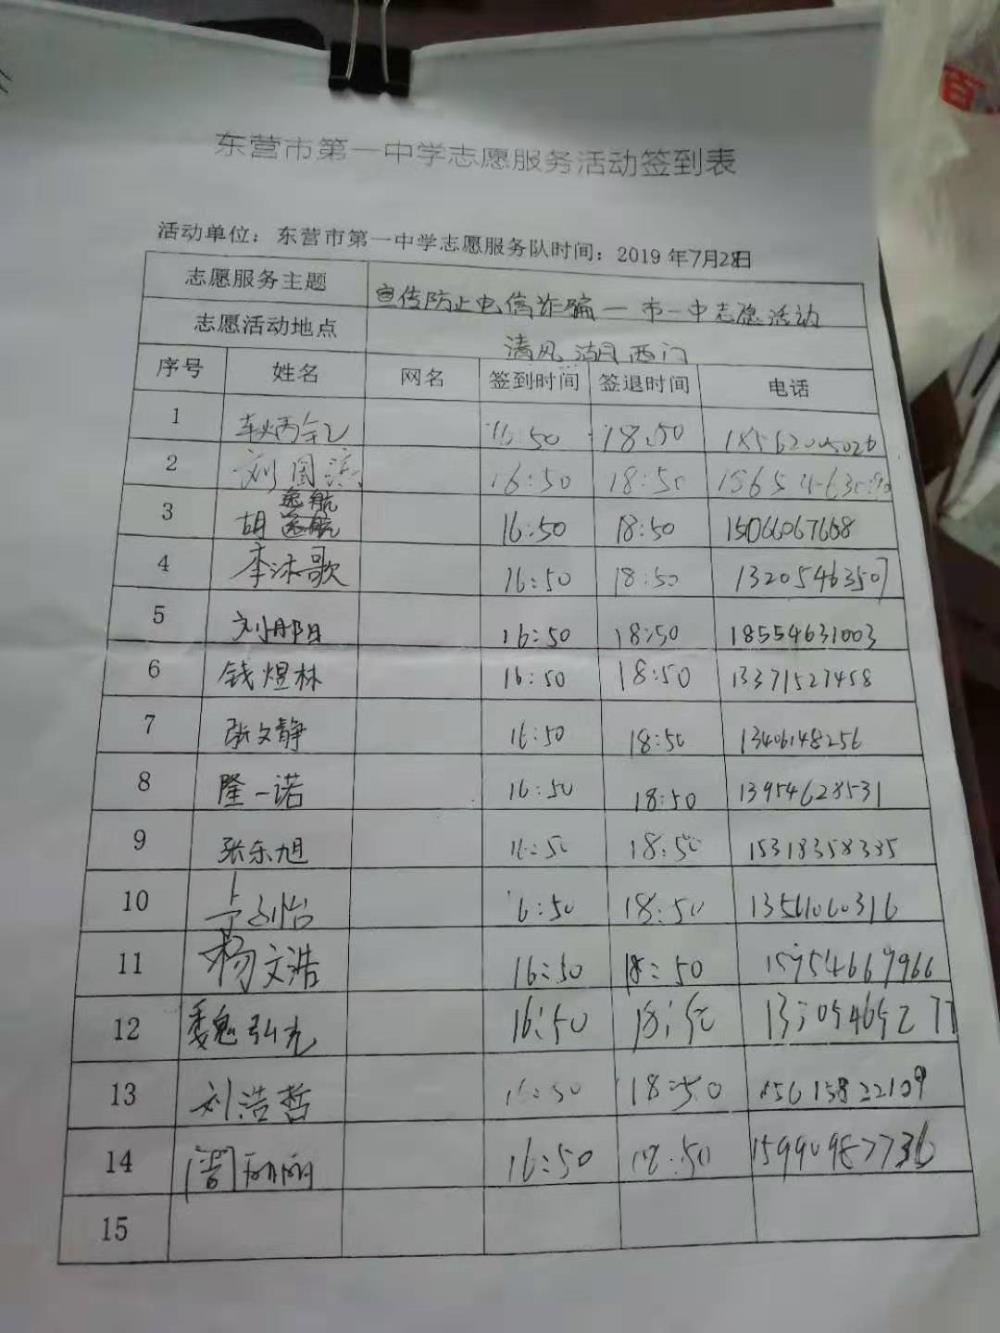 百
东营市第一中学志愿服务活动签到表
活动单位：东营市第一中学志愿服务队时间：2019年7月28日
志愿服务主题 宣传防止电信诈骗—市一中志愿活动
志愿活动地点 清风湖西门
序号 姓名 网名 签到时间 签退时间 电话
1 16:50 18:50
2 刘国涛 16:50 18:50
3 胡逸航 16:50 18:50 15066067668
4 李沐歌 16:50 18:50 13205463507
5 16:50 18:50 18554631003
6 钱煜林 16:50 18:50 13371527458
7 张文静 16:50 18:50 13406148256
8 隆一诺 16:50 18:50 13954628531
9 张东旭 16:50 18:50 15318358335
10 16:50 18:50 13561060316
11 杨文浩 16:50 18:50 15954669966
12 魏弘九 16:50 18:50
13 刘浩哲 16:50 18:50 15615822109
14 16:50 18:50 15990987736
15